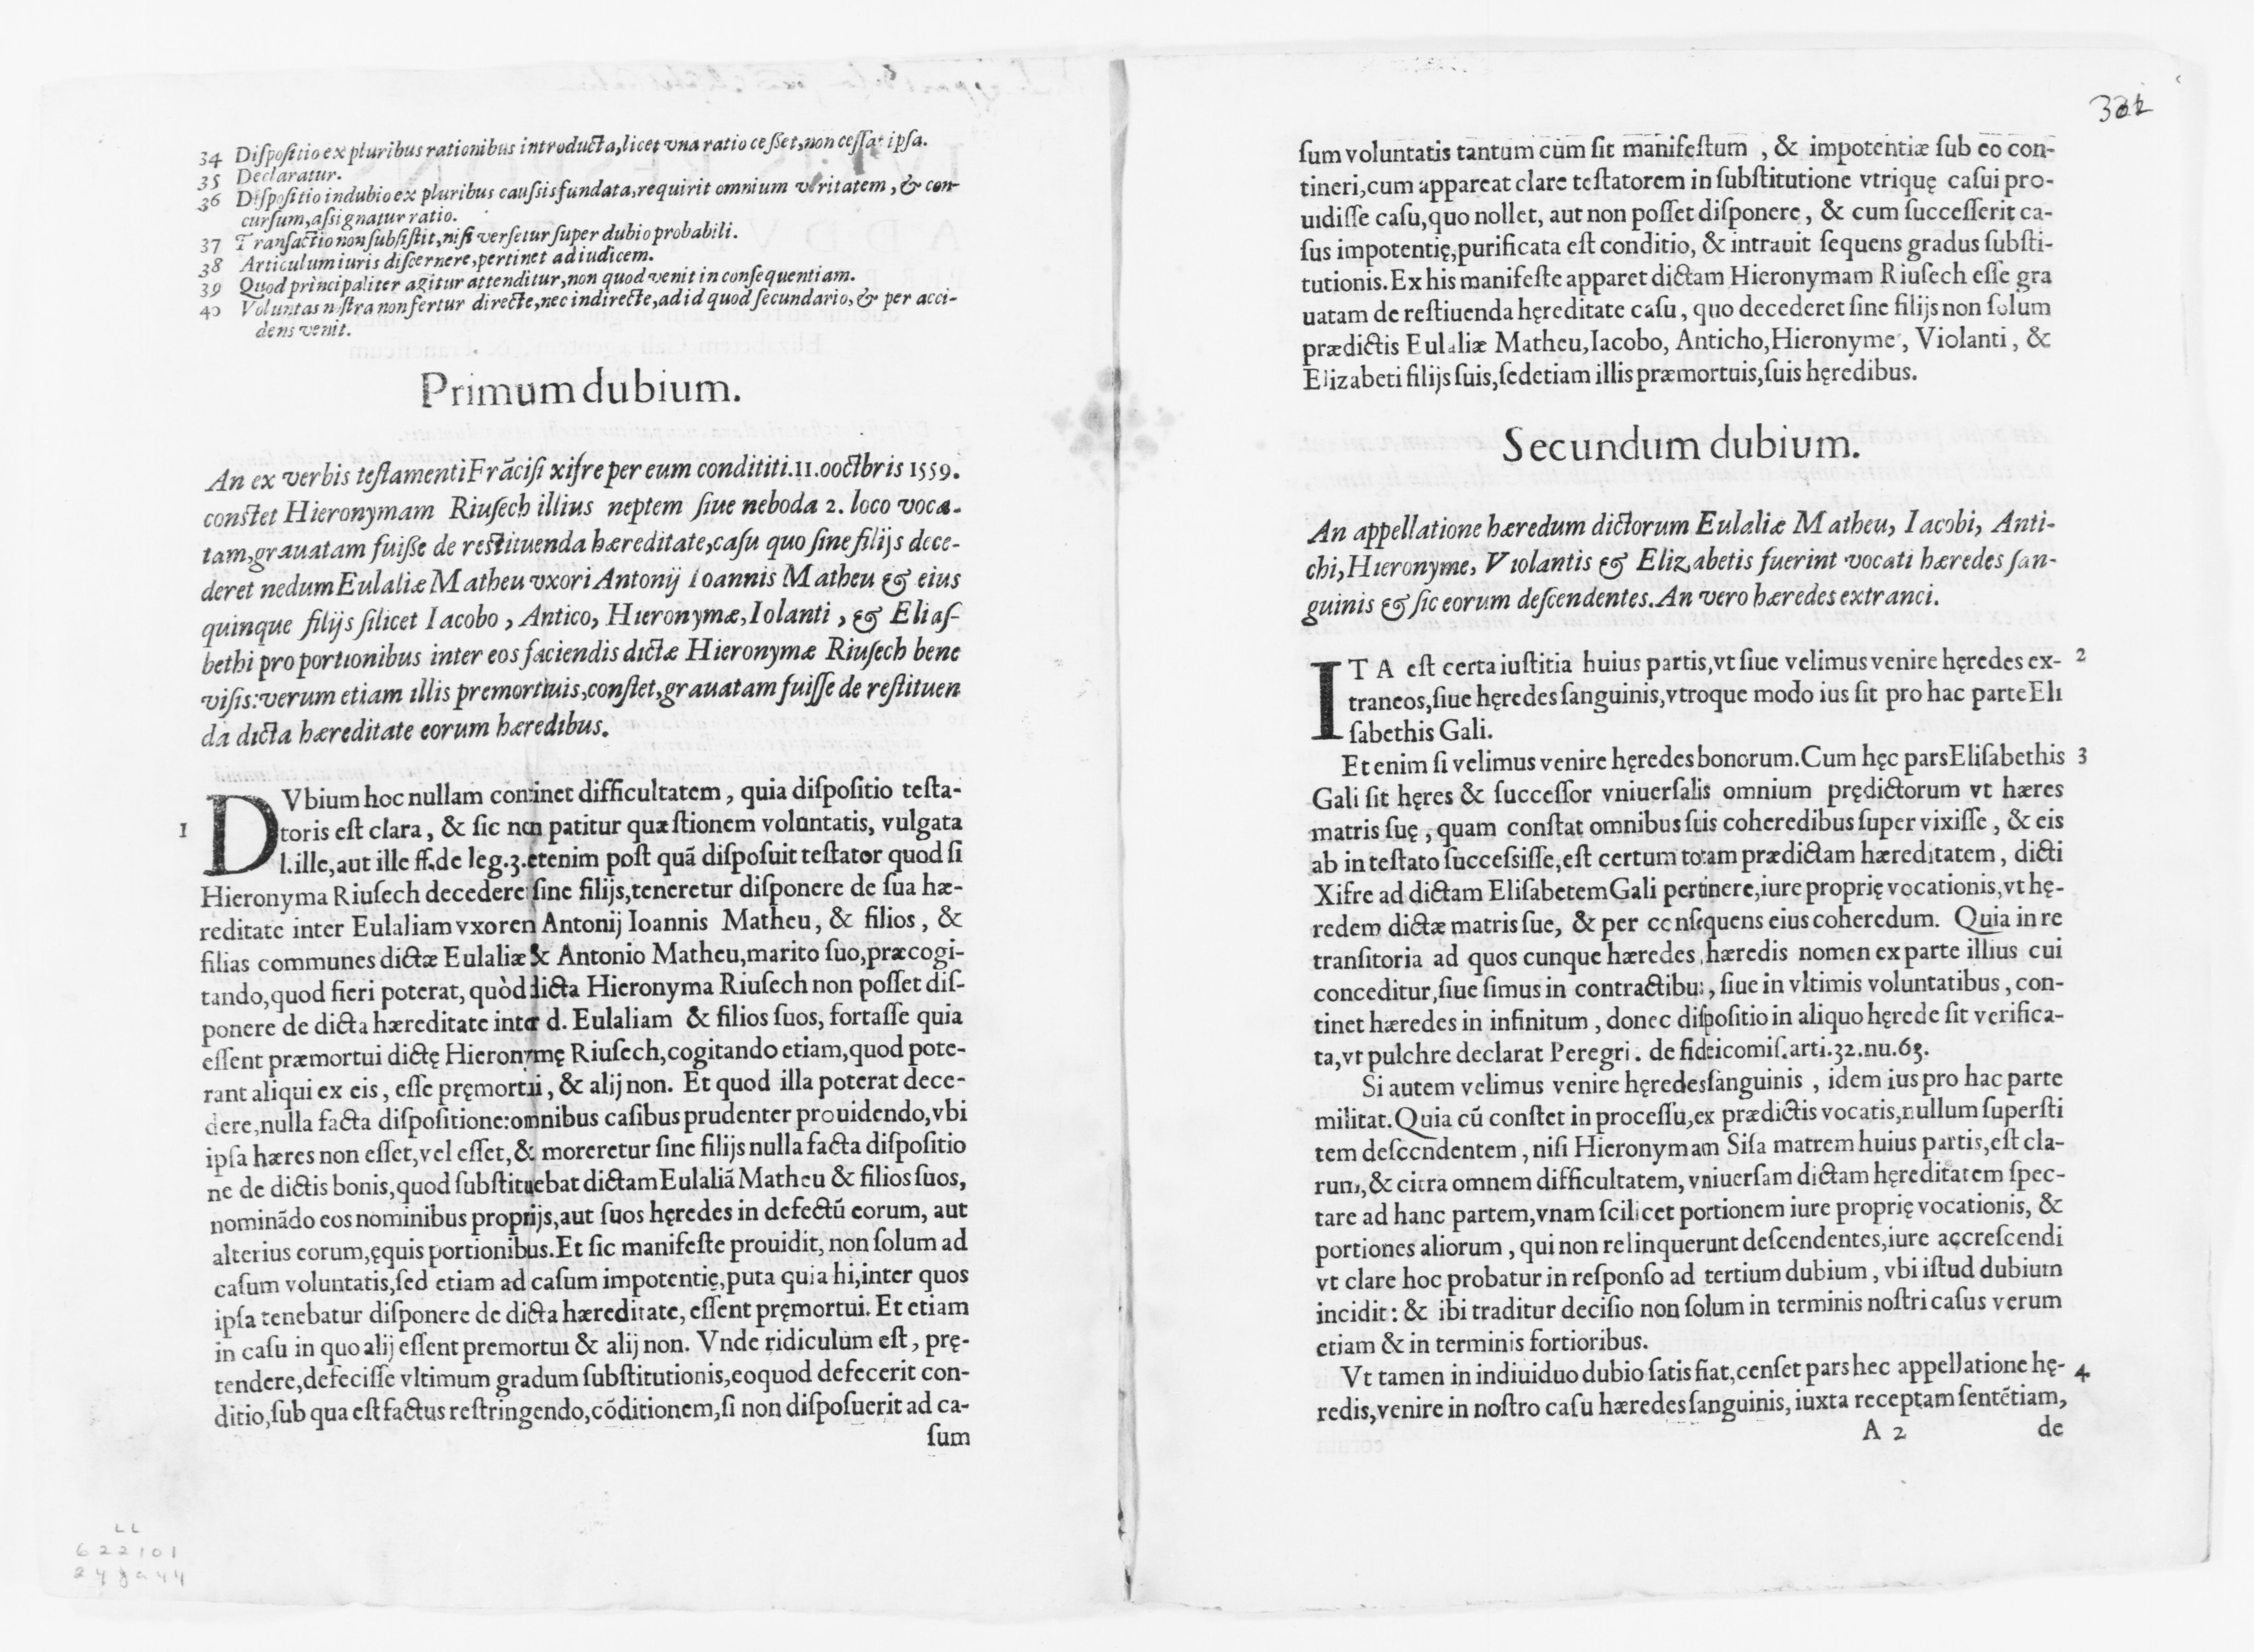 34 Diſpoſitio ex pluribus rationibus introducta, licet vna ratio ceſſet, non ceſſat ipſa.
35 Declaratur.
36 Diſpoſitio in dubio ex pluribus cauſsis fundata, requirit omnium veritatem, & con-
curſum, aſsignatur ratio.
37 Tranſactio non ſubſiſtit, niſi verſetur ſuper dubio probabili.
38 Articulum iuris diſcernere, pertinet ad iudicem.
39 Quod principaliter agitur attenditur, non quod venit in conſequentiam.
40 Voluntas noſtra non fertur directe, nec indirecte, ad id quod ſecundario, & per acci-
dens venit.
Primum dubium.
An ex verbis teſtamenti Frãciſi xifre per eum condititi. 11. ooctbris 1559.
conſtet Hieronymam Riuſech illius neptem ſiue neboda 2. loco voca-
tam, grauatam fuiſſe de reſtituenda hæreditate, caſu quo ſine filijs dece-
deret nedum Eulaliæ Matheu vxori Antonij Ioannis Matheu & eius
quinque filijs ſilicet Iacobo, Antico, Hieronymæ, Iolanti, & Eliaſ-
bethi pro portionibus inter eos faciendis dictæ Hieronymæ Riuſech bene
viſis: verum etiam illis premortuis, conſtet, grauatam fuiſſe de reſtituen
da dicta hæreditate eorum hæredibus.
DVbium hoc nullam continet difficultatem, quia diſpoſitio teſta-
1 toris eſt clara, & ſic non patitur quæſtionem voluntatis, vulgata
l. ille, aut ille ff. de leg. 3. etenim poſt quã diſpoſuit teſtator quod ſi
Hieronyma Riuſech decederet ſine filijs, teneretur diſponere de ſua hæ-
reditate inter Eulaliam vxorem Antonij Ioannis Matheu, & filios, &
filias communes dictæ Eulaliæ & Antonio Matheu, marito ſuo, præcogi-
tando, quod fieri poterat, quòd dicta Hieronyma Riuſech non poſſet diſ-
ponere de dicta hæreditate inter d. Eulaliam & filios ſuos, fortaſſe quia
eſſent præmortui dictę Hieronymę Riuſech, cogitando etiam, quod pote-
rant aliqui ex eis, eſſe pręmortii, & alij non. Et quod illa poterat dece-
dere, nulla facta diſpoſitione: omnibus caſibus prudenter prouidendo, vbi
ipſa hæres non eſſet, vel eſſet, & moreretur ſine filijs nulla facta diſpoſitio
ne de dictis bonis, quod ſubſtituebat dictam Eulaliã Matheu & filios ſuos,
nominãdo eos nominibus proprijs, aut ſuos hęredes in defectũ eorum, aut
alterius eorum, ęquis portionibus. Et ſic manifeſte prouidit, non ſolum ad
caſum voluntatis, ſed etiam ad caſum impotentię, puta quia hi, inter quos
ipſa tenebatur diſponere de dicta hæreditate, eſſent pręmortui. Et etiam
in caſu in quo alij eſſent premortui & alij non. Vnde ridiculum eſt, prę-
tendere, defeciſſe vltimum gradum ſubſtitutionis, eoquod defecerit con-
ditio, ſub qua eſt factus reſtringendo, cõditionem, ſi non diſpoſuerit ad ca-
ſum
LL
622101
ſum voluntatis tantum cùm ſit manifeſtum, & impotentiæ ſub eo con-
tineri, cum appareat clare teſtatorem in ſubſtitutione vtriquę caſui pro-
uidiſſe caſu, quo nollet, aut non poſſet diſponere, & cum ſucceſſerit ca-
ſus impotentię, purificata eſt conditio, & intrauit ſequens gradus ſubſti-
tutionis. Ex his manifeſte apparet dictam Hieronymam Riuſech eſſe gra
uatam de reſtiuenda hęreditate caſu, quo decederet ſine filijs non ſolum
prædictis Eulaliæ Matheu, Iacobo, Anticho, Hieronyme, Violanti, &
Elizabeti filijs ſuis, ſedetiam illis præmortuis, ſuis hęredibus.
Secundum dubium.
An appellatione hæredum dictorum Eulaliæ Matheu, Iacobi, Anti-
chi, Hieronyme, Violantis & Elizabetis fuerint vocati hæredes ſan-
guinis & ſic eorum deſcendentes. An vero hæredes extranci.
ITA eſt certa iuſtitia huius partis, vt ſiue velimus venire hęredes ex- 2
traneos, ſiue hęredes ſanguinis, vtroque modo ius ſit pro hac parte Eli
ſabethis Gali.
Etenim ſi velimus venire hęredes bonorum. Cum hęc pars Eliſabethis 3
Gali ſit hęres & ſucceſſor vniuerſalis omnium prędictorum vt hæres
matris ſuę, quam conſtat omnibus ſuis coheredibus ſuper vixiſſe, & eis
ab inteſtato ſucceſsiſſe, eſt certum totam prædictam hæreditatem, dicti
Xifre ad dictam Eliſabetem Gali pertinere, iure proprię vocationis, vt hę-
redem dictæ matris ſue, & per conſequens eius coheredum. Quia in re
tranſitoria ad quos cunque hæredes, hæredis nomen ex parte illius cui
conceditur, ſiue ſimus in contractibus, ſiue in vltimis voluntatibus, con-
tinet hæredes in infinitum, donec diſpoſitio in aliquo hęrede ſit verifica-
ta, vt pulchre declarat Peregri. de fideicomiſ. arti. 32. nu. 63.
Si autem velimus venire hęredes ſanguinis, idem ius pro hac parte
militat. Quia cũ conſtet in proceſſu, ex prædictis vocatis, nullum ſuperſti
tem deſcendentem, niſi Hieronymam Siſa matrem huius partis, eſt cla-
rum, & citra omnem difficultatem, vniuerſam dictam hęreditatem ſpec-
tare ad hanc partem, vnam ſcilicet portionem iure proprię vocationis, &
portiones aliorum, qui non relinquerunt deſcendentes, iure accreſcendi
vt clare hoc probatur in reſponſo ad tertium dubium, vbi iſtud dubium
incidit: & ibi traditur deciſio non ſolum in terminis noſtri caſus verum
etiam & in terminis fortioribus.
Vt tamen in indiuiduo dubio ſatis fiat, cenſet pars hec appellatione hę- 4
redis, venire in noſtro caſu hæredes ſanguinis, iuxta receptam ſentẽtiam,
A 2 de